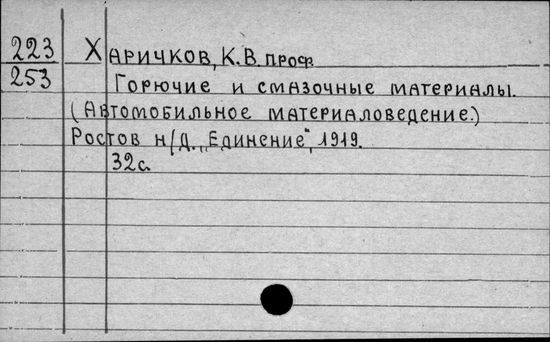 223 Харичков, К.В. проф.
253 Горючие и смазочные материалы.
(Автомобильное материаловедение.)
Ростов н/Д., „Единение", 1919.
32с.